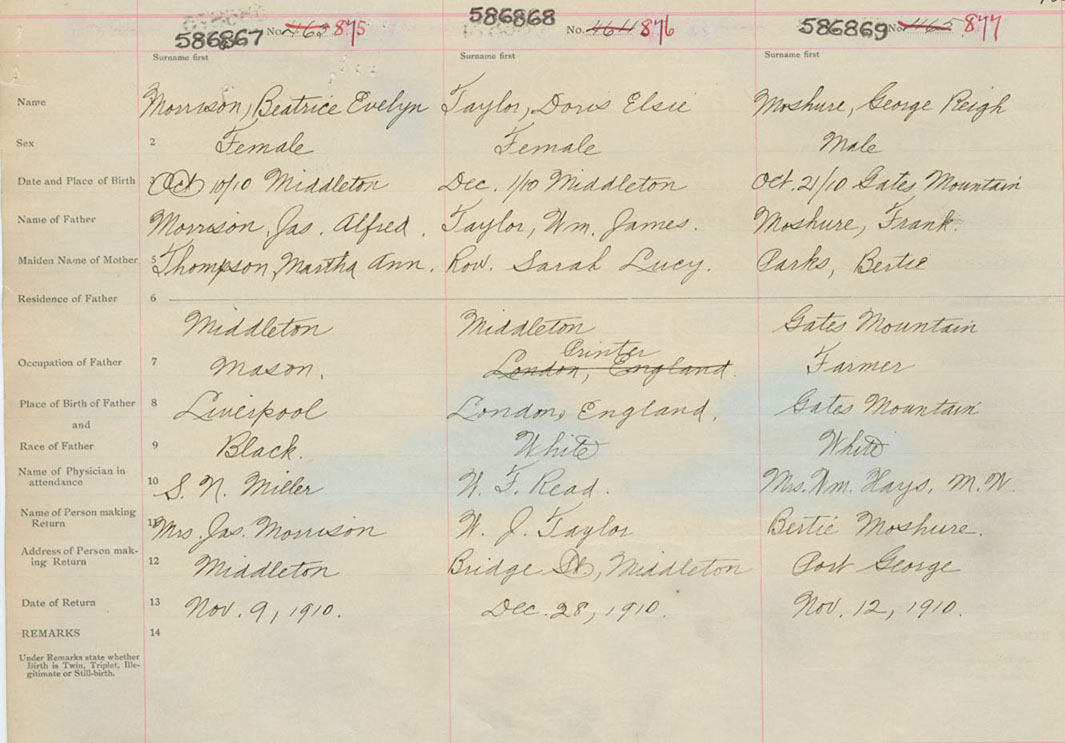 586867 No. 463 875
586868 No. 464 876
586869 No. 465 877
Surname first Surname first Surname first
Name Morrison, Beatrice Evelyn Taylor, Doris Elsie Moshure, George Reigh
Sex 2 Female Female Male
Date and Place of Birth 3 Oct 10/10 Middleton Dec. 1/10 Middleton Oct. 21/10 Gates Mountain
Name of Father Morrison, Jas. Alfred. Taylor, Wm. James. Moshure, Frank.
Maiden Name of Mother 5 Thompson, Martha Ann. Row. Sarah Lucy. Parks, Bertie
Residence of Father 6
Middleton Middleton Gates Mountain
Printer
Occupation of Father 7 Mason. London, England Farmer
Place of Birth of Father 8 Liverpool London, England. Gates Mountain
and
Race of Father 9 Black. White White
Name of Physician in
attendance 10 S. N. Miller W. F. Read. Mrs. Wm. Hays, M.W.
Name of Person making
Return 11 Mrs. Jas. Morrison W. J. Taylor Bertie Moshure.
Address of Person mak-
ing Return 12 Middleton Bridge St., Middleton Port George
Date of Return 13 Nov. 9, 1910. Dec. 28, 1910. Nov. 12, 1910.
REMARKS 14
Under Remarks state whether
Birth is Twin, Triplet, Ille-
gitimate or Still-birth.